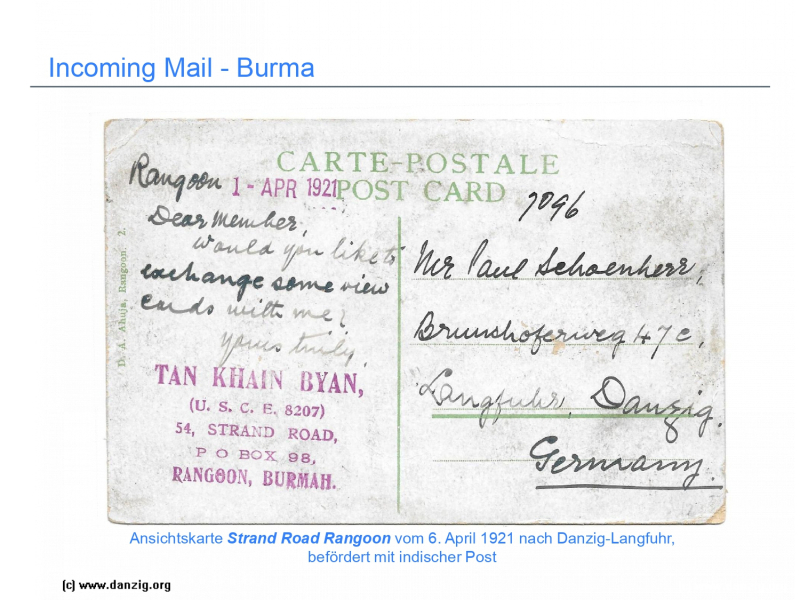 Incoming Mail - Burma
CARTE-POSTALE
POST CARD
Rangoon 1 - APR 1921
Dear Member,
would you like to
exchange some view
cards with me?
yours truly,
TAN KHAIN BYAN,
(U. S. C. E. 8207)
54, STRAND ROAD,
P O BOX 98,
RANGOON, BURMAH.
D. A. Ahuja, Rangoon. 2.
7096
Mr Paul Schoenherr,
Brunshoferweg 47c,
Langfuhr, Danzig.
Germany.
Ansichtskarte Strand Road Rangoon vom 6. April 1921 nach Danzig-Langfuhr,
befördert mit indischer Post
(c) www.danzig.org